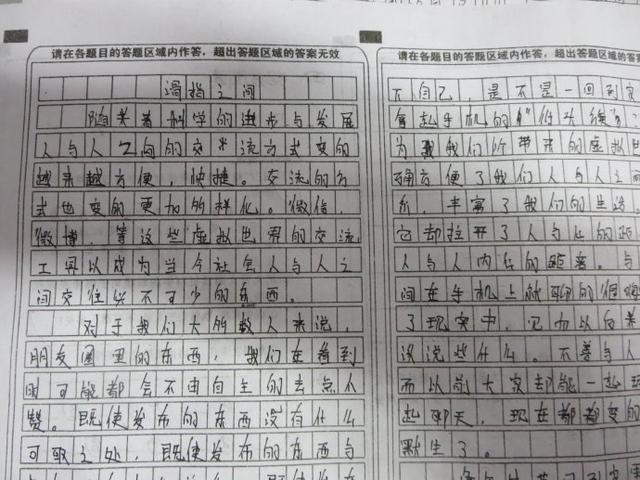 请在各题目的答题区域内作答，超出答题区域的答案无效
滑指之间
随着科学的进步与发展
人与人之间的交流方式变的
越来越方便，快捷。交流的方
式也变的更加的多样化。微信，
微博，等这些虚拟世界的交流
工具以成为当今社会人与人之
间交往必不可少的东西。
对于我们大多数人来说，
朋友圈里的东西，我们在看到
时可能都会不由自主的去点个
赞。既使发布的东西没有什么
可取之处，既使发布的东西与
请在各题目的答题区域内作答，超出答题区域的答案
不自己，是不是一回到家
拿起手机的“低头族”？
为我们所带来的虚拟世
确方便了我们人与人之
系，丰富了我们的生活。
它却拉开了人与人的距
人与人内心的距离。与
间在手机上就聊的很嗨
了现实中，
该说些什么。不善与人
而以前大家却能一起玩
起聊天，现在都变的
默生了。